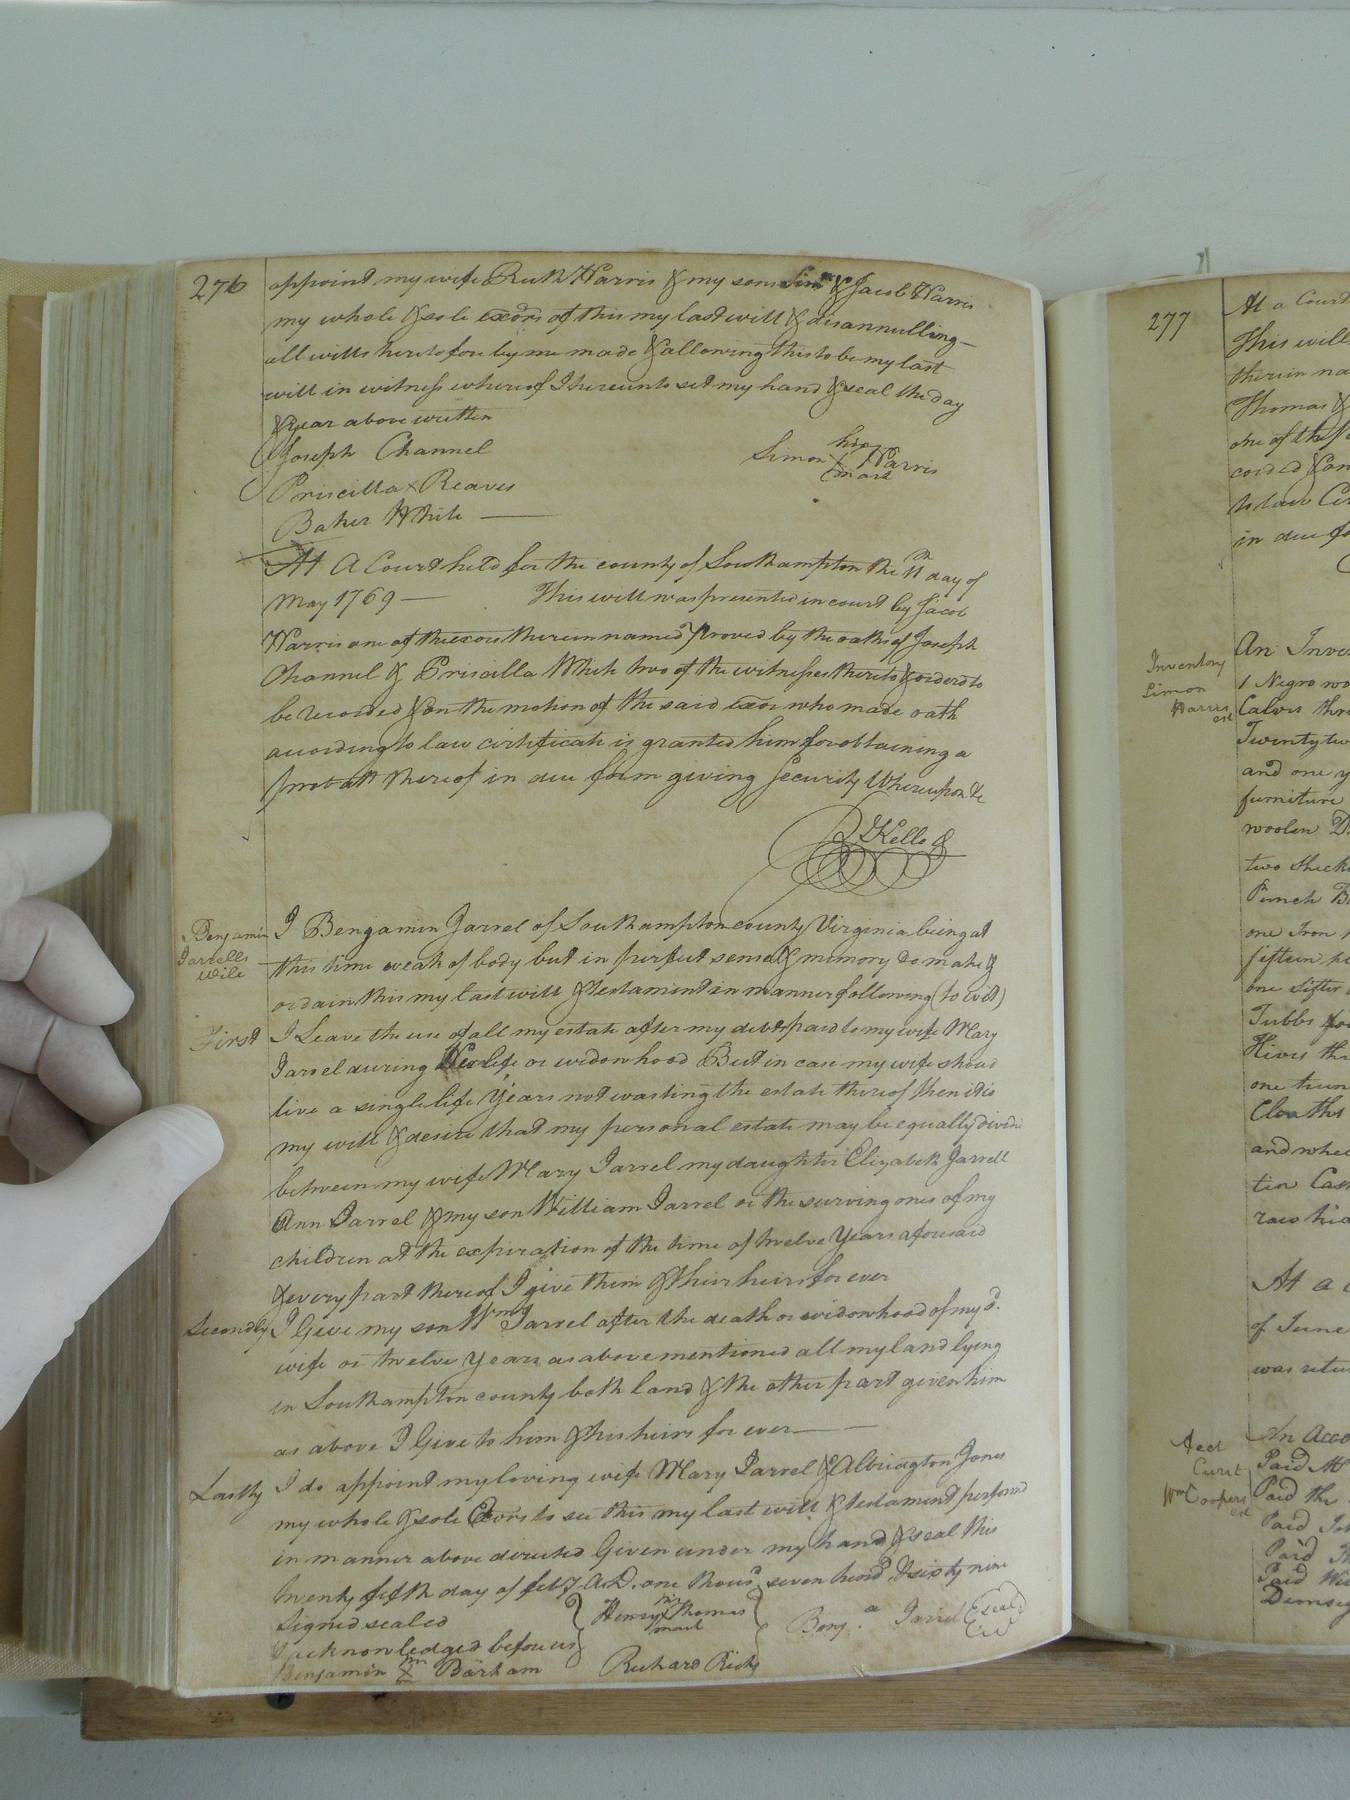 276
appoint my wife Ruth Harris & my sons Simn & Jacob Harris
my whole & sole exors of this my last will & disannulling
all wills heretofore by me made & allowing this to be my last
will in witness whereof I hereunto set my hand & seal the day
& year above written
Joseph Channel
his
Simon X Harris
mark
Priscilla X Reaves
Baker White
At A Court held for the county of Southampton the 11th day of
May 1769 — This will was presented in court by Jacob
Harris one of the exors therein named proved by the oaths of Joseph
Channel & Priscilla White two of the witnesses thereto & ordered to
be recorded & on the motion of the said exor who made oath
according to law certificate is granted him for obtaining a
probatt thereof in due form giving security Whereupon &c
R Kello
Benjamin
Jarrells
wile
I Benjamin Jarrel of Southampton county Virginia being at
this time weak of body but in perfect sense & memory do make &
ordain this my last will & testament in manner following (to wit)
First I Leave the use of all my estate after my debts paid to my wife Mary
Jarrel during Her life or widowhood But in case my wife shoud
live a single life years not wasting the estate thereof then it is
my will & desire that my personal estate may be equally divide
between my wife Mary Jarrel my daughter Elizabeth Jarrell
Ann Jarrel & my son William Jarrel or the surviving ones of my
children at the expiration of the time of twelve years aforesaid
& every part thereof I give them & their heirs for ever
Secondly I Give my son Wm Jarrel after the death or widowhood of my sd.
wife or twelve years as above mentioned all my land lying
in Southampton county both land & the other part given him
as above I Give to him & his heirs for ever
Lastly I do appoint my loving wife Mary Jarrel & Albriagton Jones
my whole & sole Exors to see this my last will & testament performd
in manner above directed Given under my hand & seal this
twenty fifth day of feby A.D. one thousd seven hund & sixty nine
Signed sealed
& acknowledged before us
his
Henry X Thomas
mark
Benja Jarrel (seal)
Benjamin X Barham
Richard Ricks
277
At a Court
This will
therein na
Thomas &
one of the
corded & on
to law Cer
in due fo
Inventory
Simon
Harris
est
An Inve
1 Negro wo
Calves thre
Twenty tw
and one y
furniture
woolen
two
Punch B
one Iron
fifteen
one sifter
Tubbs
Hives th
one
Cloaths
and whee
ten
raw hid
At a C
of June
was retu
Acct
Curt
Wm Coopers
est
An Acco
Paid
Paid the
Paid
Paid
Paid